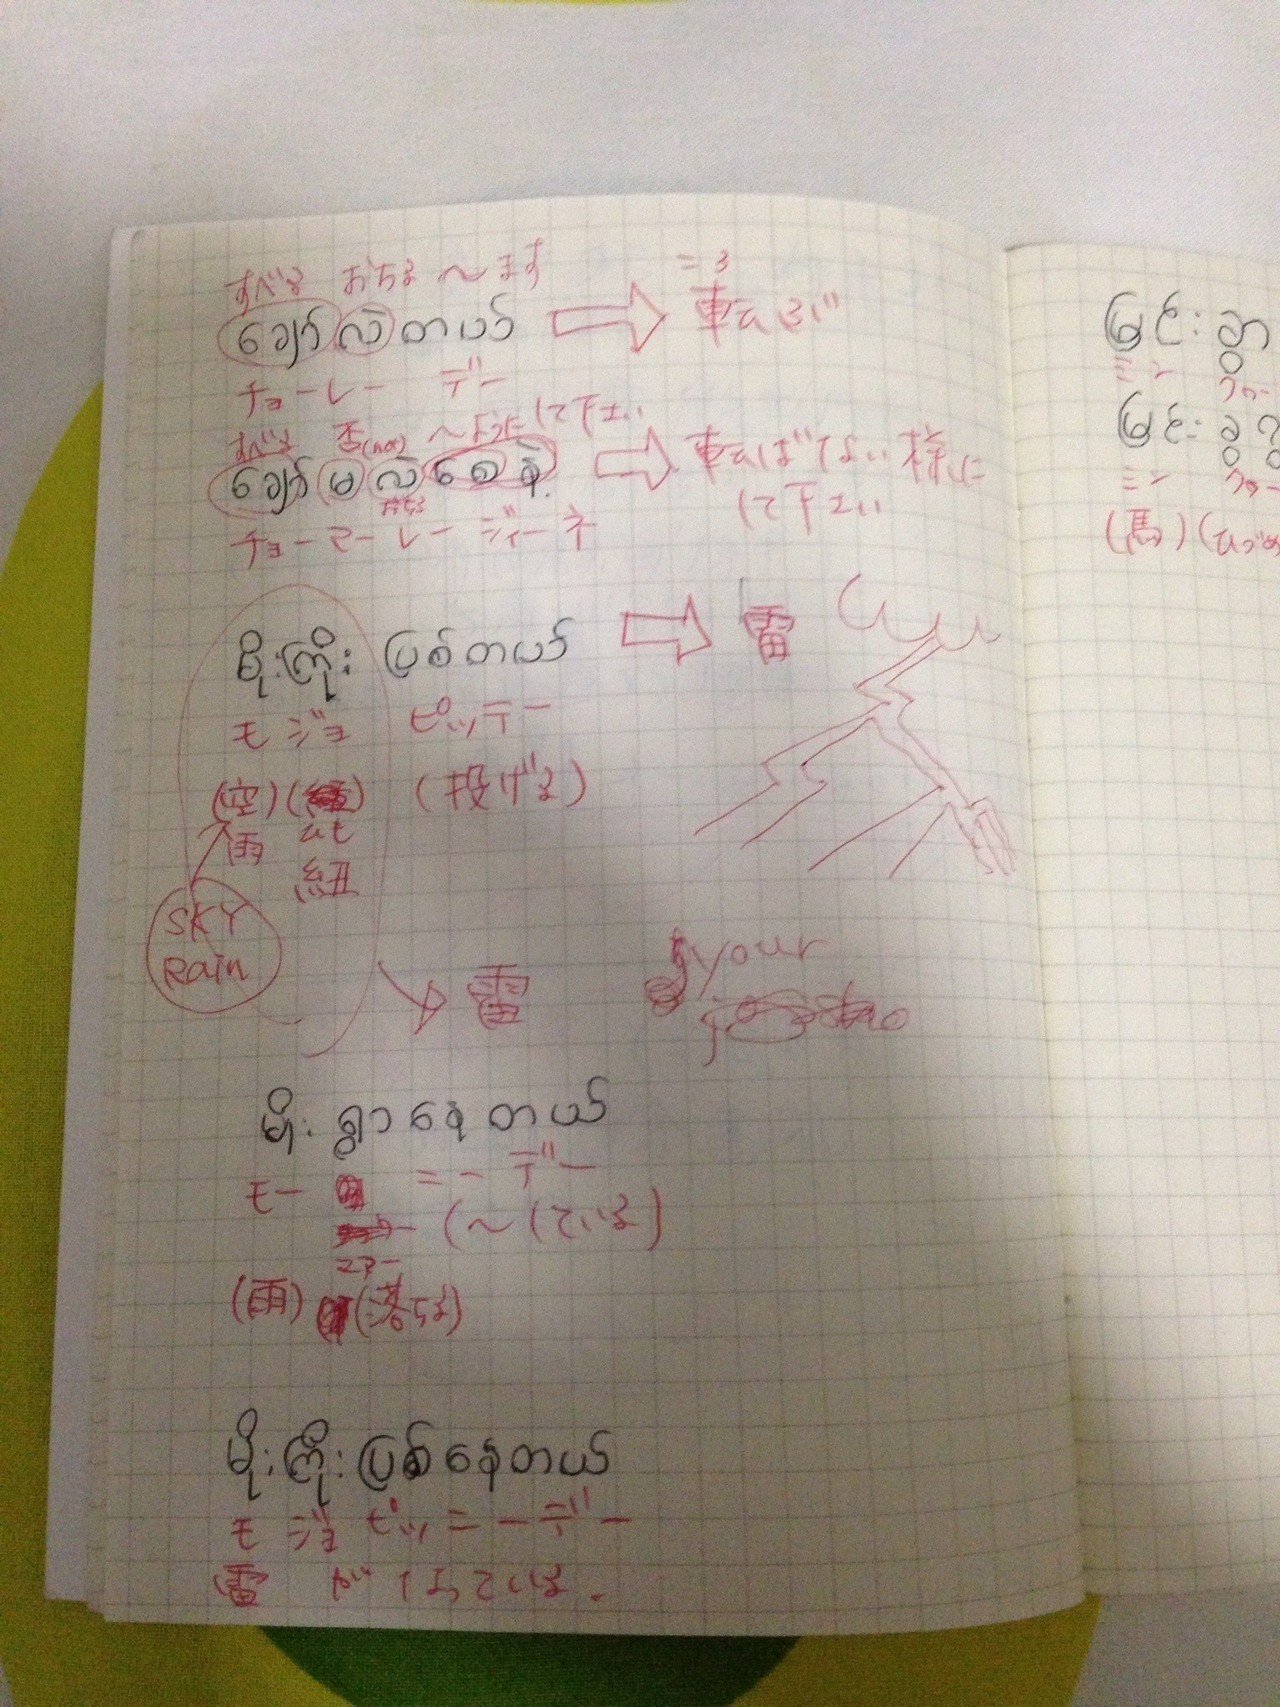 すべる おちる 〜ます
ချော်လဲတယ် ころ
転ぶ
チョーレー デー
すべる 否(not) 〜ように して下さい
ချော်မလဲစေနဲ့ 転ばない様に
おちる して下さい
チョーマーレージィーネ
မိုးကြိုး ပြစ်တယ် 雷
モ ジョ ピッテー
(空) ( ) (投げる)
雨 ひも
紐
SKY
Rain
雷
your
မိုး ရွာနေတယ်
モー ニーデー
(〜している)
(雨) (落ちる)
မိုးကြိုးပြစ်နေတယ်
モ ジョ ピッニーデー
雷 が
မြင်း ခွာ
ミン
မြင်း
ミン
(馬) (ひづめ